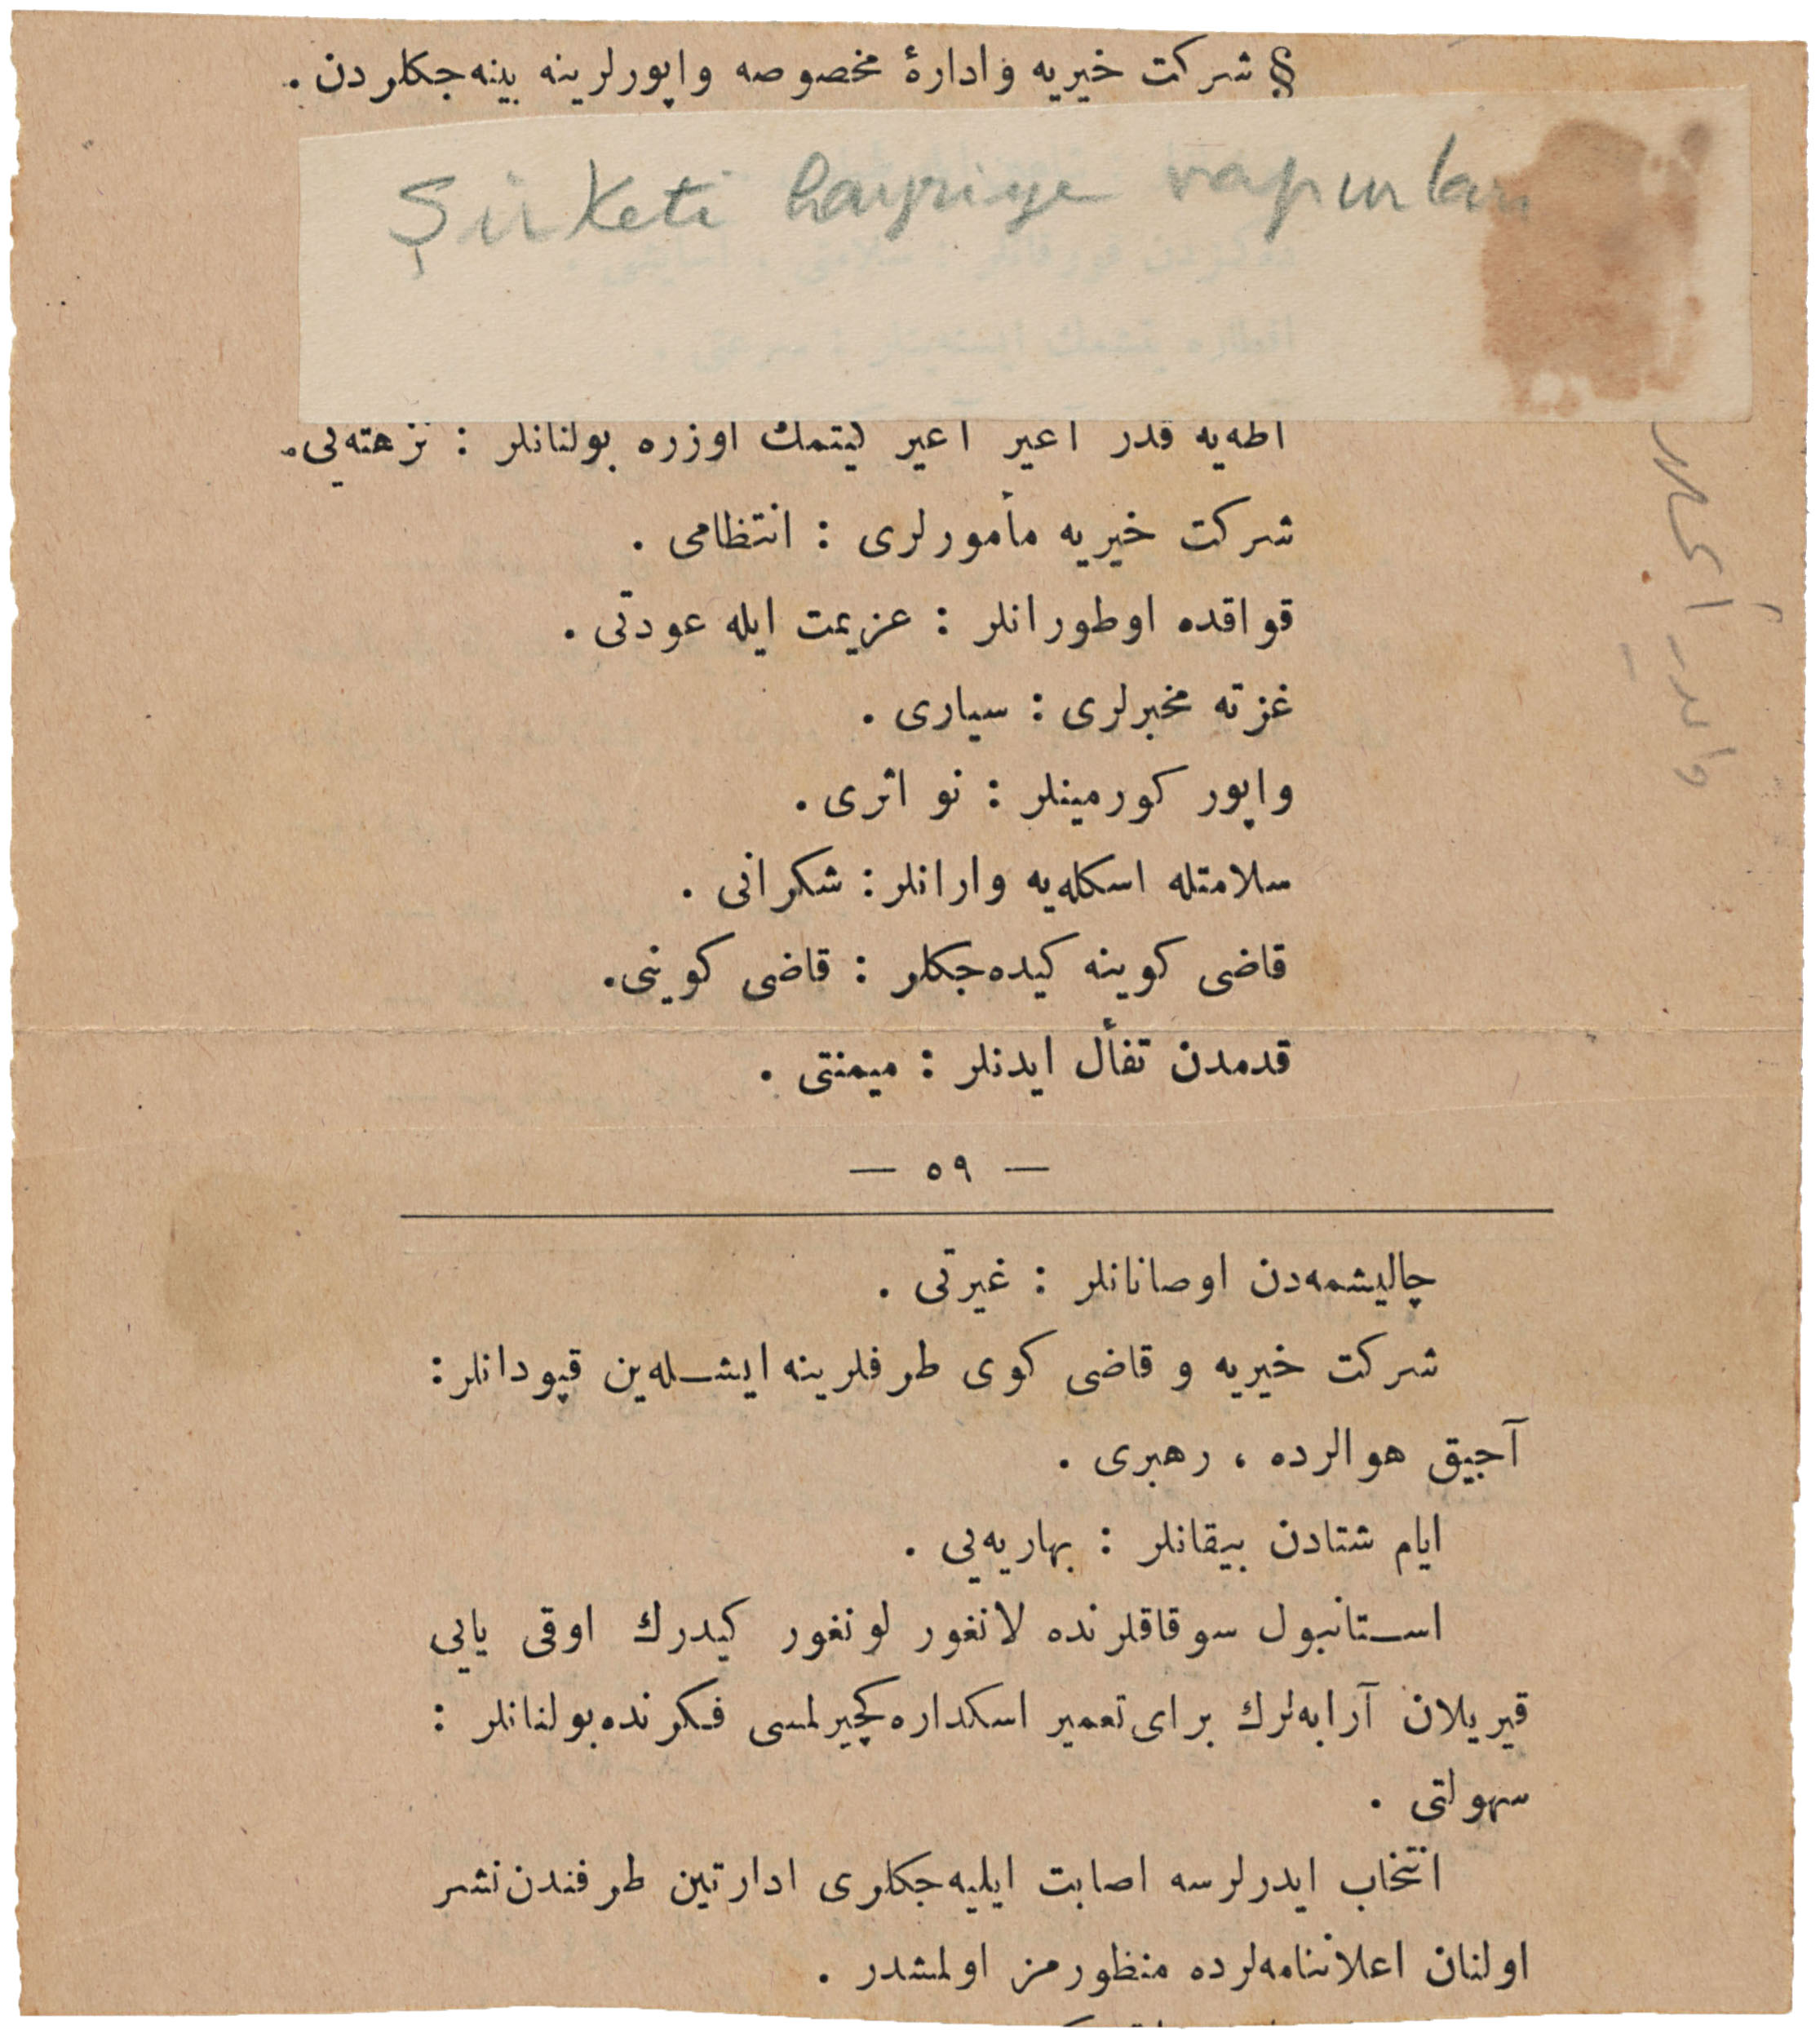 § شركت خيريه و ادارهٔ مخصوصه واپورلرينه بينه‌جكلردن .
Şirketi hayriye vapurları
اطه‌يه قدر آغير آغير كيتمك اوزره بولنانلر : نزهته‌يى .
شركت خيريه مأمورلرى : انتظامى .
قواقده اوطورانلر : عزيمت ايله عودتى .
غزته مخبرلرى : سيارى .
واپور كورمينلر : نو اثرى .
سلامتله اسكله‌يه وارانلر : شكرانى .
قاضى كوينه كيده‌جكلر : قاضى كوينى .
قدمدن تفأل ايدنلر : ميمنتى .
— ٥٩ —
چاليشمه‌دن اوصانانلر : غيرتى .
شركت خيريه و قاضى كوى طرفلرينه ايشله‌ين قپودانلر :
آجيق هوالرده ، رهبرى .
ايام شتادن بيقانلر : بهاريه‌يى .
استانبول سوقاقلرنده لانغور لونغور كيدرك اوقى يايى
قيريلان آرابه‌لرك براى تعمير اسكداره كچيرلمسى فكرنده بولنانلر :
سهولتى .
انتخاب ايدرلرسه اصابت ايليه‌جكلرى ادارتين طرفندن نشر
اولنان اعلاننامه‌لرده منظورمز اولمشدر .